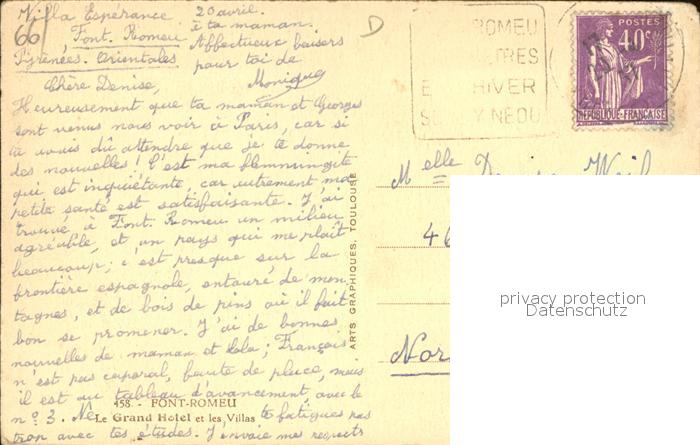 Villa Espérance
66
Font. Romeu
Pyrénées. Orientales
20 avril.
à ta maman.
Affectueux baisers
pour toi de
Monique
D
Chère Denise,
Heureusement que ta maman et Georges
sont venus nous voir à Paris, car si
tu avais dû attendre que je te donne
des nouvelles ! C'est ma flemmingite
qui est inquiétante, car autrement ma
petite santé est satisfaisante. J'ai
trouvé à Font. Romeu un milieu
agréable, et un pays qui me plaît
beaucoup ; c'est presque sur la
frontière espagnole, entouré de mon
tagnes, et de bois de pins où il fait
bon se promener. J'ai de bonnes
nouvelles de maman et Lola ; François
n'est pas caporal, faute de place, mais
il est au tableau d'avancement, avec le
n° 3. Ne te fatigues pas
trop avec tes études. J'envoie mes respects
158 - FONT-ROMEU
Le Grand Hotel et les Villas
ARTS GRAPHIQUES, TOULOUSE
ROMEU
HIVER
POSTES
40c
REPUBLIQUE-FRANÇAISE
Melle
46
Nor
privacy protection
Datenschutz